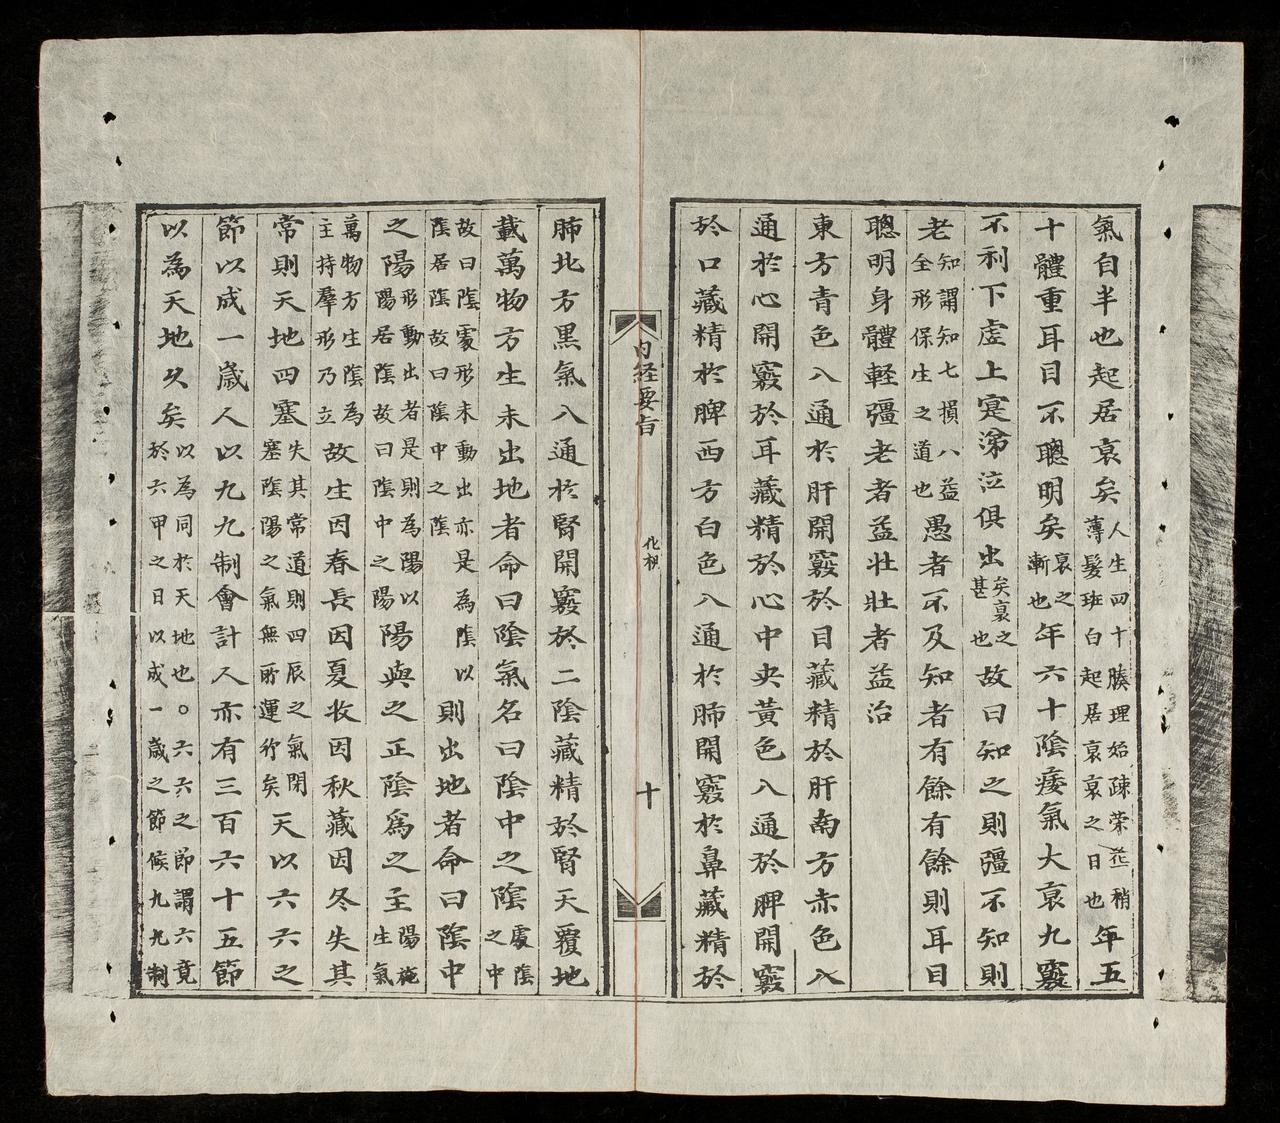 氣自半也起居衰矣人生四十腠理始疎荣花稍薄髮班白起居衰衰之日也年五
十體重耳目不聰明矣衰之漸也年六十陰痿氣大衰九竅
不利下虛上寔涕泣俱出矣衰之甚也故曰知之則彊不知則
老知謂知七損八益全形保生之道也愚者不及知者有餘有餘則耳目
聰明身體輕彊老者益壯壯者益治
東方青色入通於肝開竅於目藏精於肝南方赤色入
通於心開竅於耳藏精於心中央黃色入通於脾開竅
於口藏精於脾西方白色入通於肺開竅於鼻藏精於
內経要旨
化桐
十
肺北方黑氣入通於腎開竅於二陰藏精於腎天覆地
載萬物方生未出地者命曰陰氣名曰陰中之陰處陰之中
故曰陰處形未動出亦是為陰以陰居陰故曰陰中之陰則出地者命曰陰中
之陽形動出者是則為陽以陽居陰故曰陰中之陽陽與之正陰為之主陽施生氣
萬物方生陰為主持羣形乃立故生因春長因夏收因秋藏因冬失其
常則天地四塞失其常道則四辰之氣閉塞陰陽之氣無所運行矣天以六六之
節以成一歲人以九九制會計人亦有三百六十五節
以為天地久矣以為同於天地也○六六之節謂六竟於六甲之日以成一歲之節候九九制